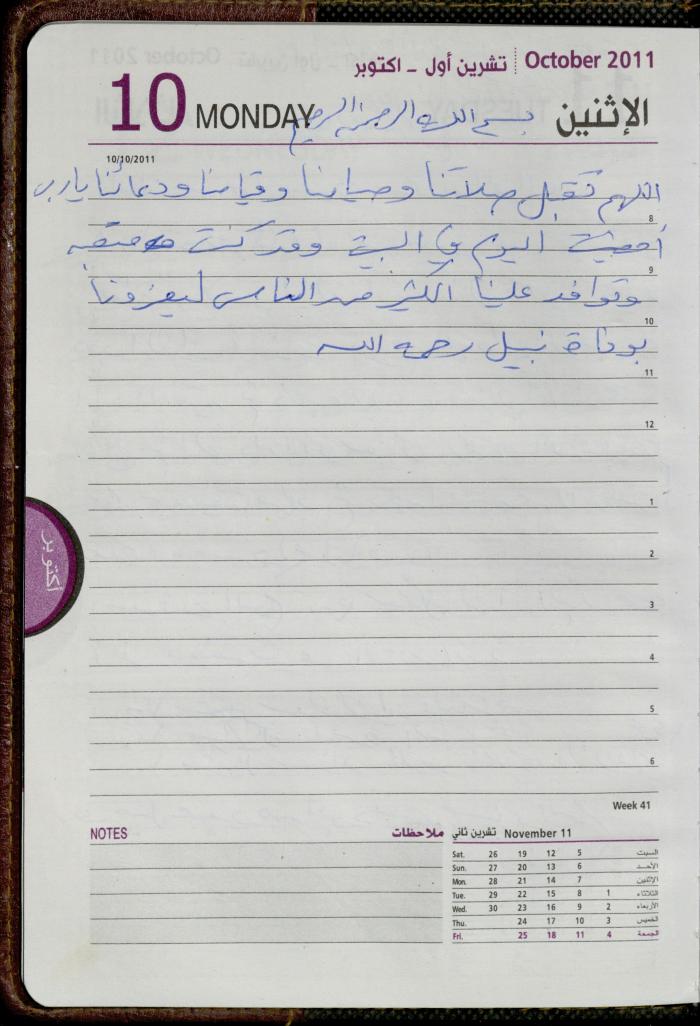 October 2011 تشرين أول ـ اكتوبر
10 MONDAY الإثنين
بسم الله الرحمن الرحيم
10/10/2011
اللهم تقبل صلاتنا وصيامنا وقيامنا ودعائنا يارب
8
أمضيت اليوم في البيت وقد كنت
9
وتوافد علينا الكثير من الناس ليعزونا
10
بوفاة نبيل رحمه الله
11
12
1
2
3
4
5
6
أكتوبر
Week 41
NOTES ملاحظات
November 11 تشرين ثاني
Sat. 26 19 12 5 السبت
Sun. 27 20 13 6 الأحد
Mon. 28 21 14 7 الإثنين
Tue. 29 22 15 8 1 الثلاثاء
Wed. 30 23 16 9 2 الأربعاء
Thu. 24 17 10 3 الخميس
Fri. 25 18 11 4 الجمعة